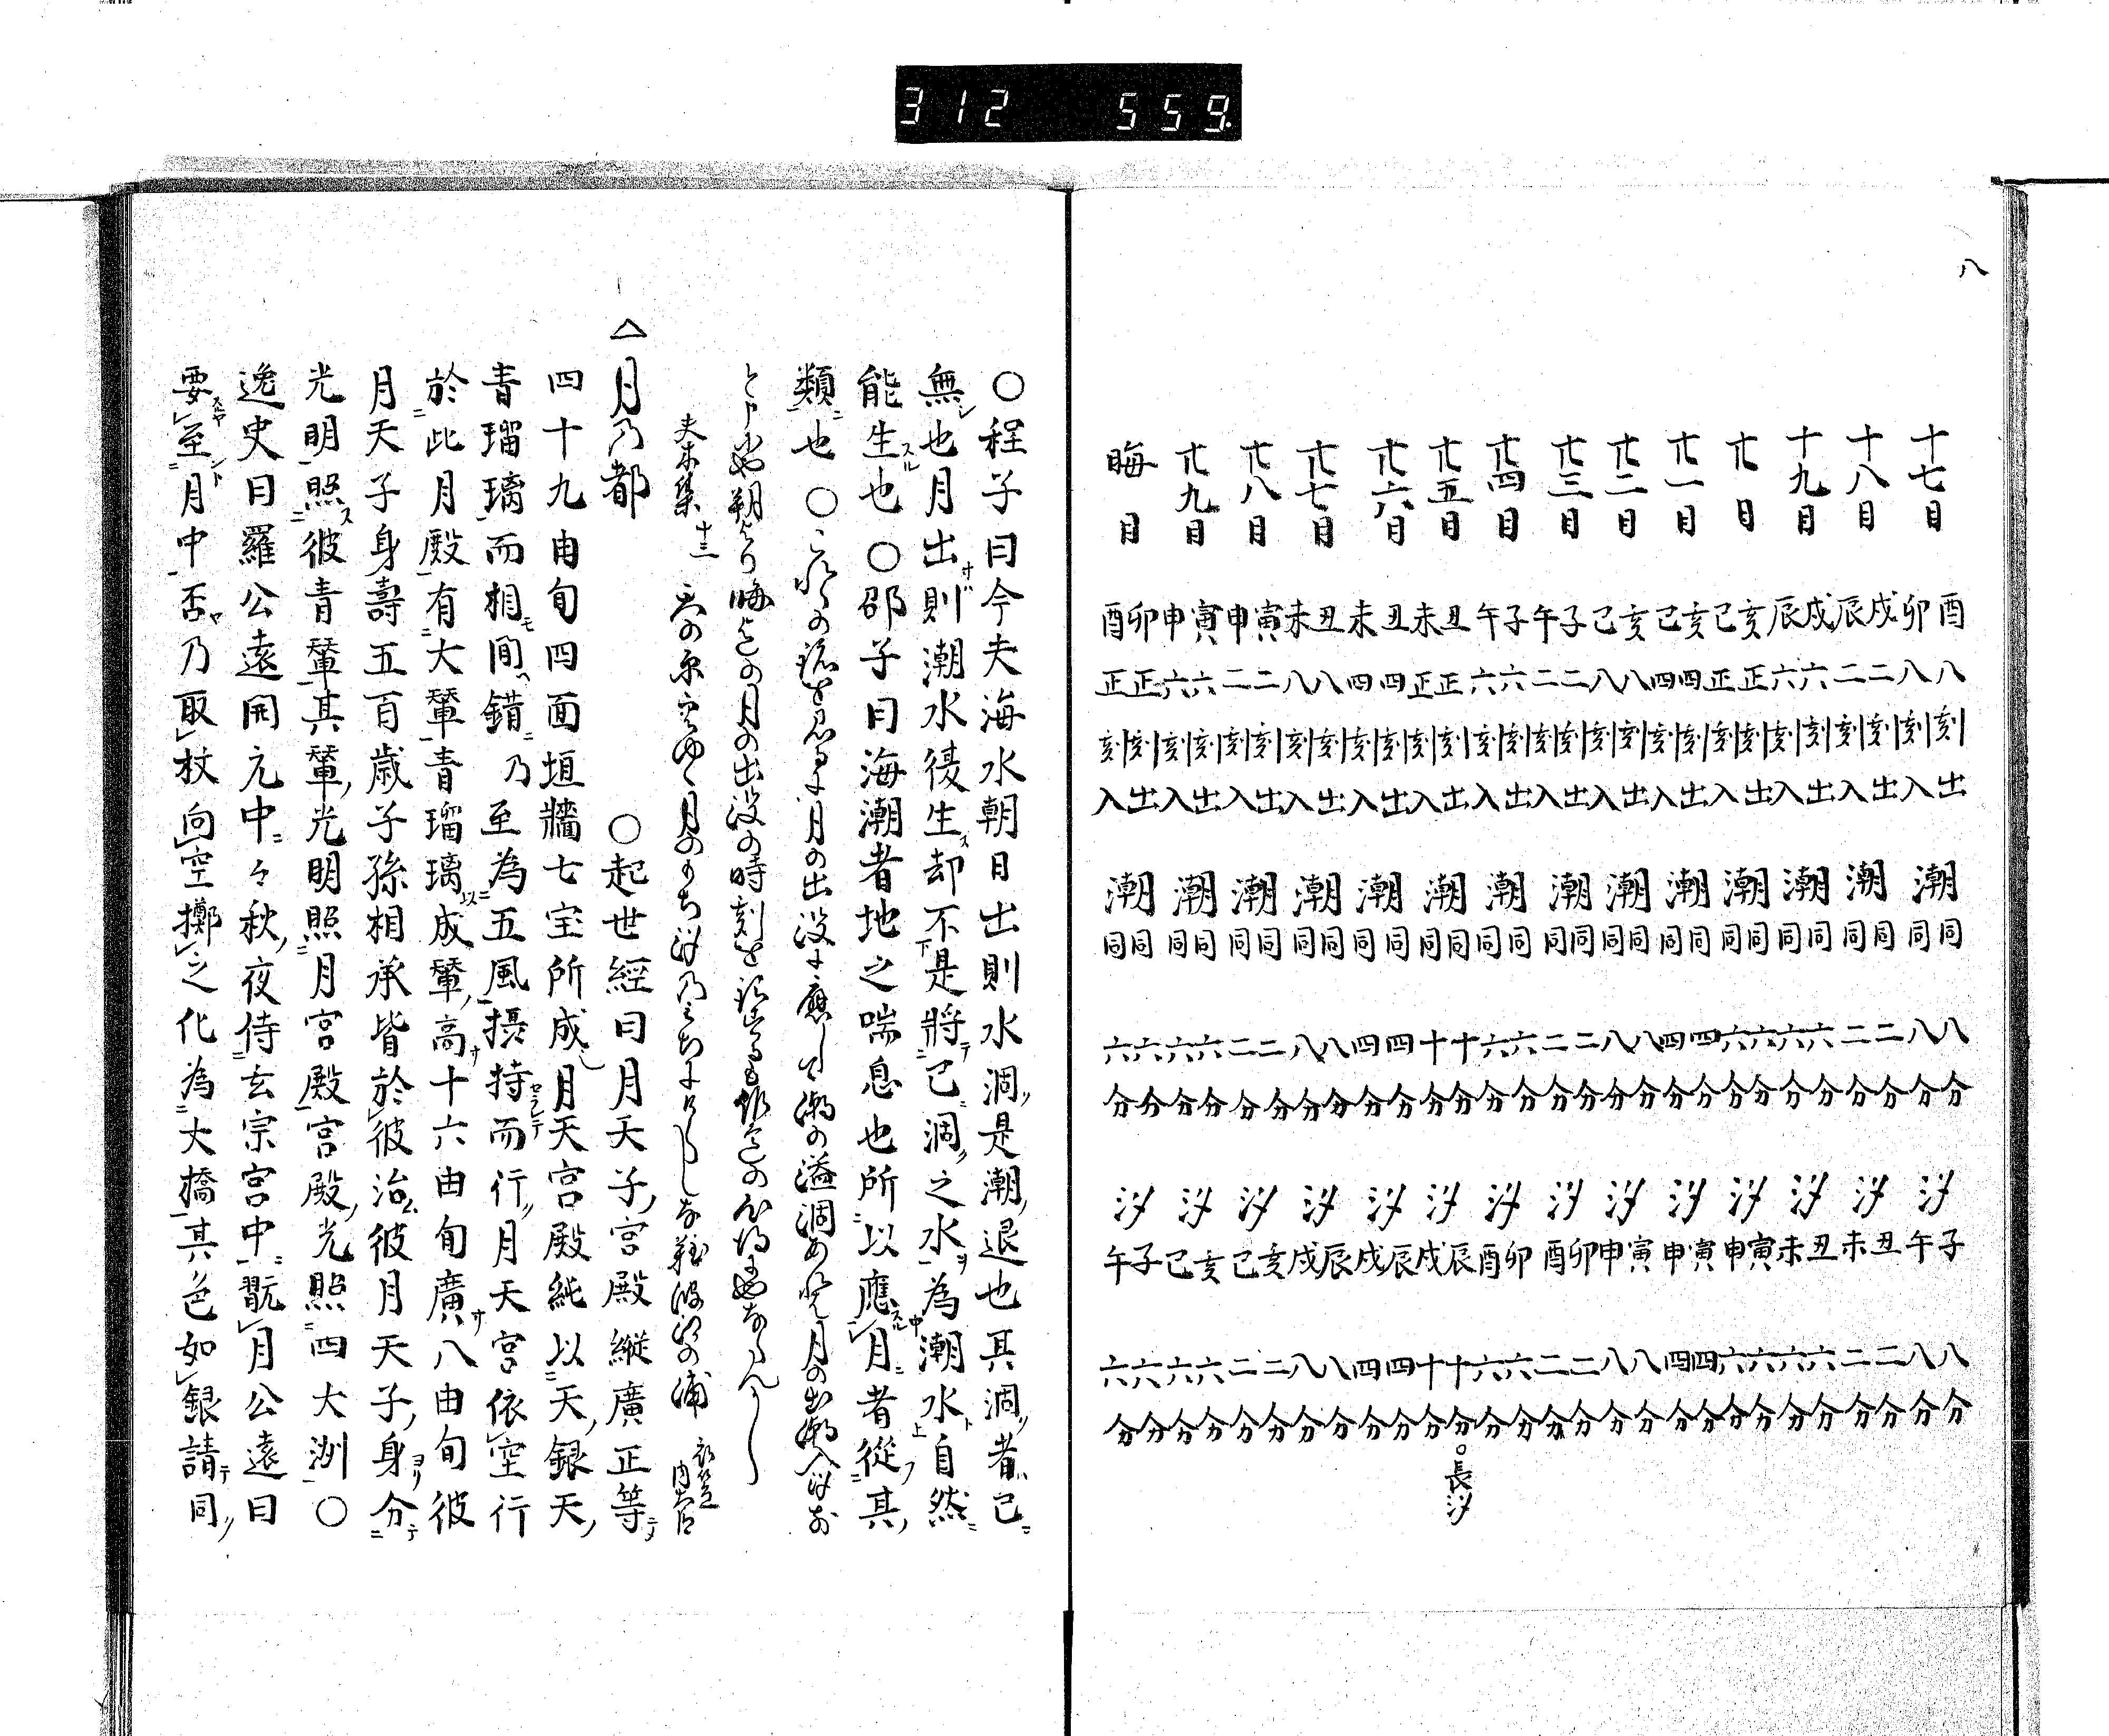 八
十七日 酉八刻出 卯八刻入 潮 同八分 同八分 汐 子八分 午八分
十八日 戌二刻出 辰二刻入 潮 同二分 同二分 汐 丑二分 未二分
十九日 戌六刻出 辰六刻入 潮 同六分 同六分 汐 丑六分 未六分
廿日 亥正刻出 巳正刻入 潮 同六分 同六分 汐 寅六分 申六分
廿一日 亥四刻出 巳四刻入 潮 同四分 同四分 汐 寅四分 申四分
廿二日 亥八刻出 巳八刻入 潮 同八分 同八分 汐 寅八分 申八分
廿三日 子二刻出 午二刻入 潮 同二分 同二分 汐 卯二分 酉二分
廿四日 子六刻出 午六刻入 潮 同六分 同六分 汐 卯六分 酉六分
廿五日 丑正刻出 未正刻入 潮 同十分 同十分 汐 辰十分 戌十分 。長汐
廿六日 丑四刻出 未四刻入 潮 同四分 同四分 汐 辰四分 戌四分
廿七日 丑八刻出 未八刻入 潮 同八分 同八分 汐 辰八分 戌八分
廿八日 寅二刻出 申二刻入 潮 同二分 同二分 汐 亥二分 巳二分
廿九日 寅六刻出 申六刻入 潮 同六分 同六分 汐 亥六分 巳六分
晦日 卯正刻出 酉正刻入 潮 同六分 同六分 汐 子六分 午六分
○程子曰今夫海水朝日出則水涸是潮退也其涸者已
無也月出則潮水復生却不是將已涸之水為潮水自然
能生也○邵子曰海潮者地之喘息也所以應月者從其
類也○これらの説を見るに月の出没に應して潮の溢涸あれハ月の出潮入汐
朔より晦まての月の出没の時刻を
夫木集十三 天の原空ゆく月の 浦 衣笠内大臣
△月乃都 ○起世經曰月天子宮殿縦廣正等
四十九由旬四面垣牆七宝所成月天宮殿純以天銀天
青瑠璃而相間錯乃至為五風摂持而行月天宮依空行
於此月殿有大輦青瑠璃成輦高十六由旬廣八由旬彼
月天子身壽五百歳子孫相承皆於彼治彼月天子身分
光明照彼青輦其輦光明照月宮殿宮殿光照四大洲○
逸史曰羅公遠開元中々秋夜侍玄宗宮中翫月公遠曰
要至月中否乃取杖向空擲之化為大橋其色如銀請同
312 559.